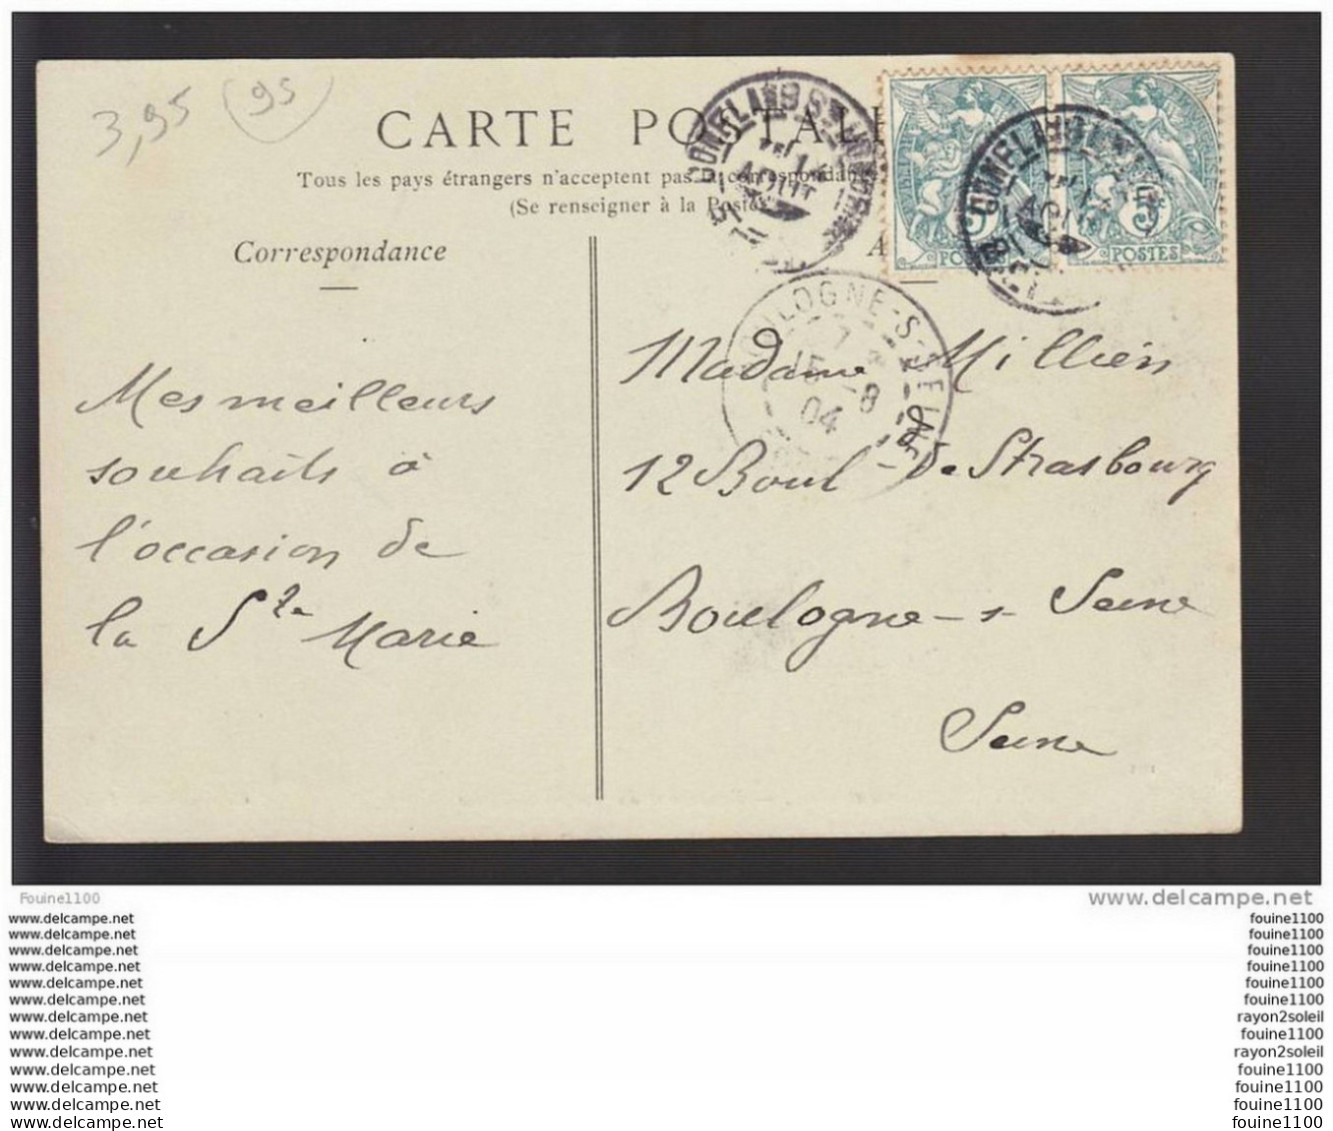 3,95 95
CARTE POSTALE
Tous les pays étrangers n'acceptent pas la correspondance
(Se renseigner à la Poste)
Correspondance
A
5 POSTES
5 POSTES
CONFLANS
AOUT
BOULOGNE-S-SEINE
7
15 -8
04
Mes meilleurs
souhaits à
l'occasion de
la Ste Marie
Madame Millien
12 Boul de Strasbourg
Boulogne-s-Seine
Seine
Fouine1100
www.delcampe.net
www.delcampe.net
www.delcampe.net
www.delcampe.net
www.delcampe.net
www.delcampe.net
www.delcampe.net
www.delcampe.net
www.delcampe.net
www.delcampe.net
www.delcampe.net
www.delcampe.net
www.delcampe.net
www.delcampe.net
fouine1100
fouine1100
fouine1100
fouine1100
fouine1100
fouine1100
rayon2soleil
fouine1100
rayon2soleil
fouine1100
fouine1100
fouine1100
fouine1100